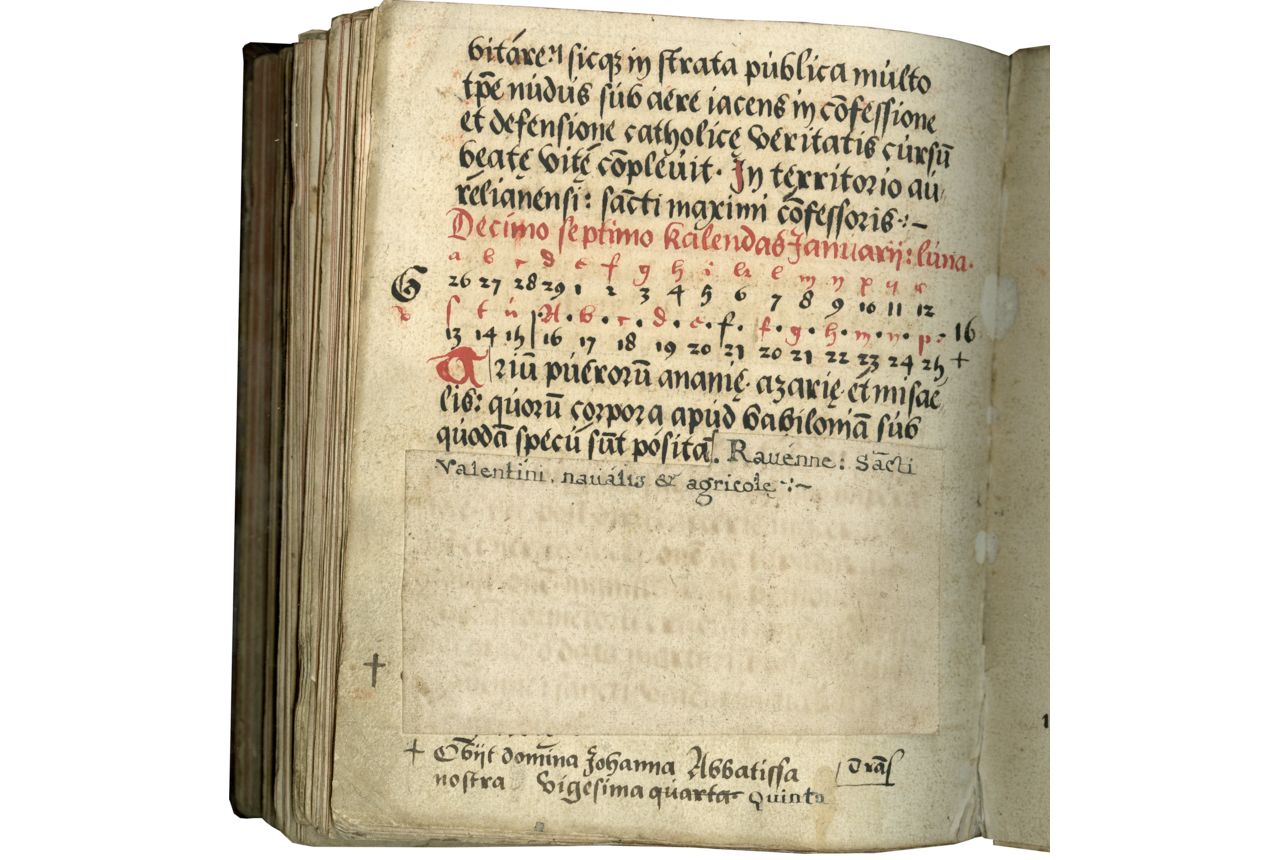 vitáreɳ sicqȝ in strata pública múlto
tp̄e núdús súb aere iacens in cōfessione
et defensione catholicę veritatis cúrsū
beatę vitę cōpleuit. In territorio aú-
relianensi: sācti maximi cōfessoris :~
Decimo septimo kalendas Januarij: lúna.
a b c d e f g h i k l m n p q r
G 26 27 28 29 1 2 3 4 5 6 7 8 9 10 11 12
s t ú A. b. c. d. e. f. f. g. h. m. n. p. 16
13 14 15 16 17 18 19 20 21 20 21 22 23 24 25 +
Triū púerorum ananię. azarię. et misae
lis: quorū corpora apúd babiloniā súb
quodā specú sūt posita. Rauenne: Sācti
Valentini, naualis & agricolę :~
+
+ Obijt domina Johanna Abbatissa
nostra vigesima quarta Quinta